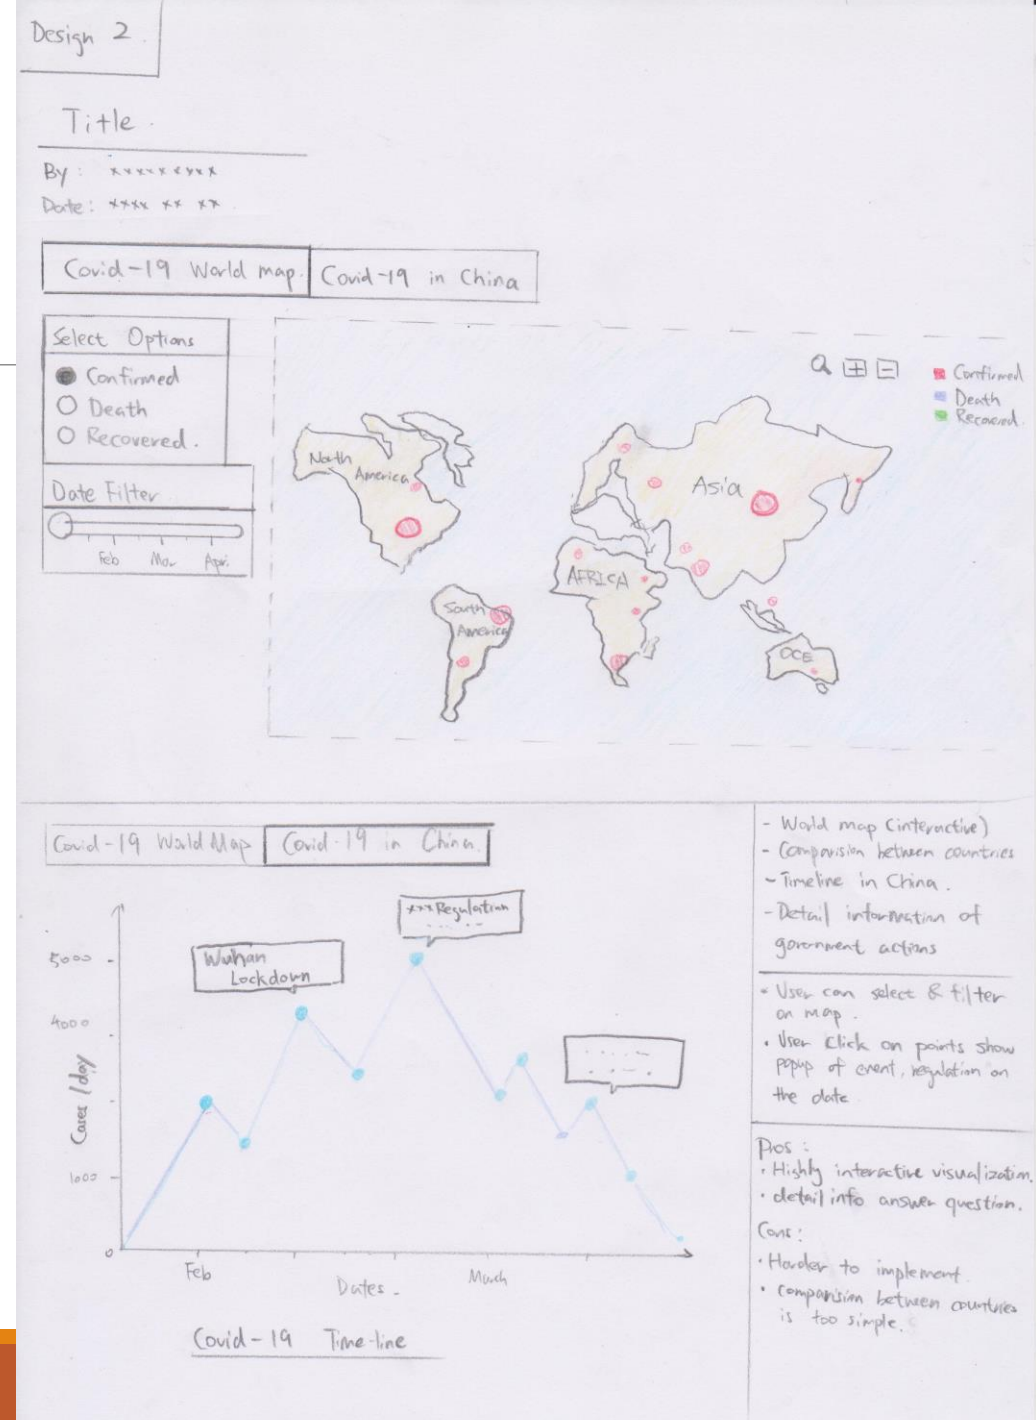 Design 2.
Title.
By: xxxxxxxxx
Date: xxxx xx xx
Covid-19 World map. Covid-19 in China
Select Options
Confirmed
Death
Recovered.
Date Filter
Feb Mar Apr.
Confirmed
Death
Recovered
North
America
Asia
AFRICA
South
America
OCE
Covid-19 World Map Covid-19 in China.
xxx Regulation
Wuhan
Lockdown
5000
4000
1000
0
Cases/day
Feb
March
Dates.
Covid-19 Time-line
- World map (interactive)
- Comparision between countries
- Timeline in China.
- Detail information of
government actions
• User can select & filter
on map.
• User click on points show
popup of event, regulation on
the date
Pros:
• Highly interactive visualization.
• detail info answer question.
Cons:
• Harder to implement
• comparision between countries
is too simple.